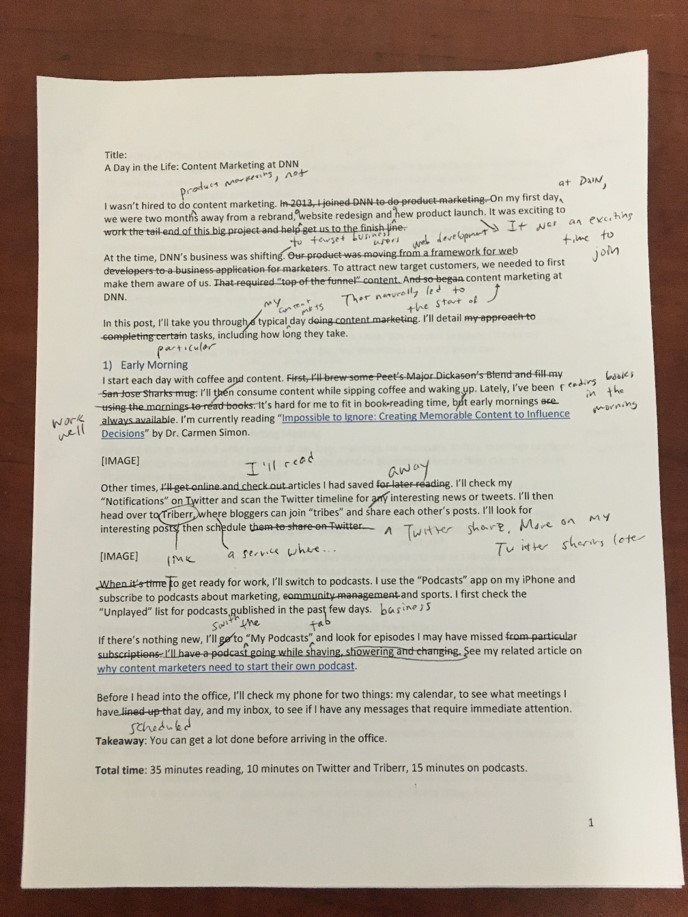 Title:
A Day in the Life: Content Marketing at DNN
product marketing, not
at DNN,
I wasn't hired to do content marketing. In 2013, I joined DNN to do product marketing. On my first day,
we were two months away from a rebrand, website redesign and new product launch. It was exciting to
work the tail end of this big project and help get us to the finish line.
It was an exciting
time to
join
to target business
users
web development
At the time, DNN's business was shifting. Our product was moving from a framework for web
developers to a business application for marketers. To attract new target customers, we needed to first
make them aware of us. That required "top of the funnel" content. And so began content marketing at
DNN.
That naturally led to
the start of
my
content
mktg
In this post, I'll take you through a typical day doing content marketing. I'll detail my approach to
completing certain tasks, including how long they take.
particular
1) Early Morning
I start each day with coffee and content. First, I'll brew some Peet's Major Dickason's Blend and fill my
San Jose Sharks mug. I'll then consume content while sipping coffee and waking up. Lately, I've been
reading books
in the
morning
using the mornings to read books. It's hard for me to fit in book-reading time, but early mornings are
work
well
always available. I'm currently reading "Impossible to Ignore: Creating Memorable Content to Influence
Decisions" by Dr. Carmen Simon.
[IMAGE]
I'll read
away
Other times, I'll get online and check out articles I had saved for later reading. I'll check my
"Notifications" on Twitter and scan the Twitter timeline for any interesting news or tweets. I'll then
head over to Triberr, where bloggers can join "tribes" and share each other's posts. I'll look for
interesting posts, then schedule them to share on Twitter.
a Twitter share. More on my
Twitter sharing later
link
a service where...
[IMAGE]
When it's time To get ready for work, I'll switch to podcasts. I use the "Podcasts" app on my iPhone and
subscribe to podcasts about marketing, community management and sports. I first check the
"Unplayed" list for podcasts published in the past few days.
business
switch
the
tab
If there's nothing new, I'll go to "My Podcasts" and look for episodes I may have missed from particular
subscriptions. I'll have a podcast going while shaving, showering and changing. See my related article on
why content marketers need to start their own podcast.
Before I head into the office, I'll check my phone for two things: my calendar, to see what meetings I
have lined up that day, and my inbox, to see if I have any messages that require immediate attention.
scheduled
Takeaway: You can get a lot done before arriving in the office.
Total time: 35 minutes reading, 10 minutes on Twitter and Triberr, 15 minutes on podcasts.
1